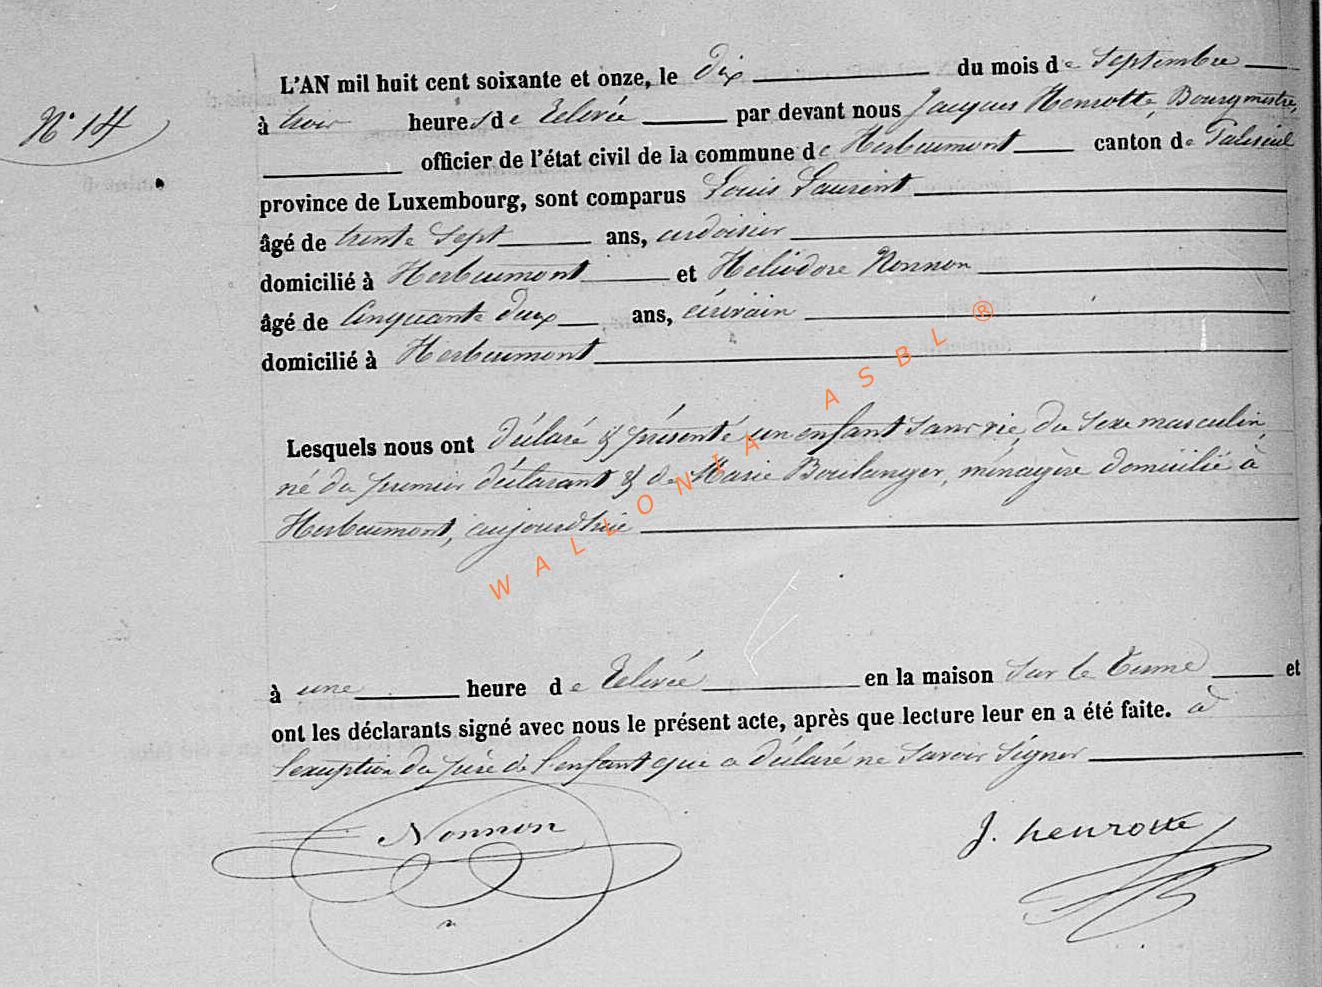 N° 14
L'AN mil huit cent soixante et onze, le dix du mois de Septembre
à trois heures de Relevée par devant nous Jacques Henrotte, Bourgmestre,
officier de l'état civil de la commune de Herbeumont canton de Paliseul
province de Luxembourg, sont comparus Louis Laurent
âgé de trente sept ans, ardoisier
domicilié à Herbeumont et Héliodore Nonnon
âgé de Cinquante deux ans, écrivain
domicilié à Herbeumont
Lesquels nous ont déclaré & présenté un enfant sans vie, du sexe masculin,
né du premier déclarant & de Marie Boulanger, ménagère domiciliée à
Herbeumont, aujourd'hui
à une heure de Relevée en la maison sur le Terme et
ont les déclarants signé avec nous le présent acte, après que lecture leur en a été faite. à
l'exception du père de l'enfant que a déclaré ne savoir signer
Nonnon
J. henrotte
WALLONIA ASBL ®